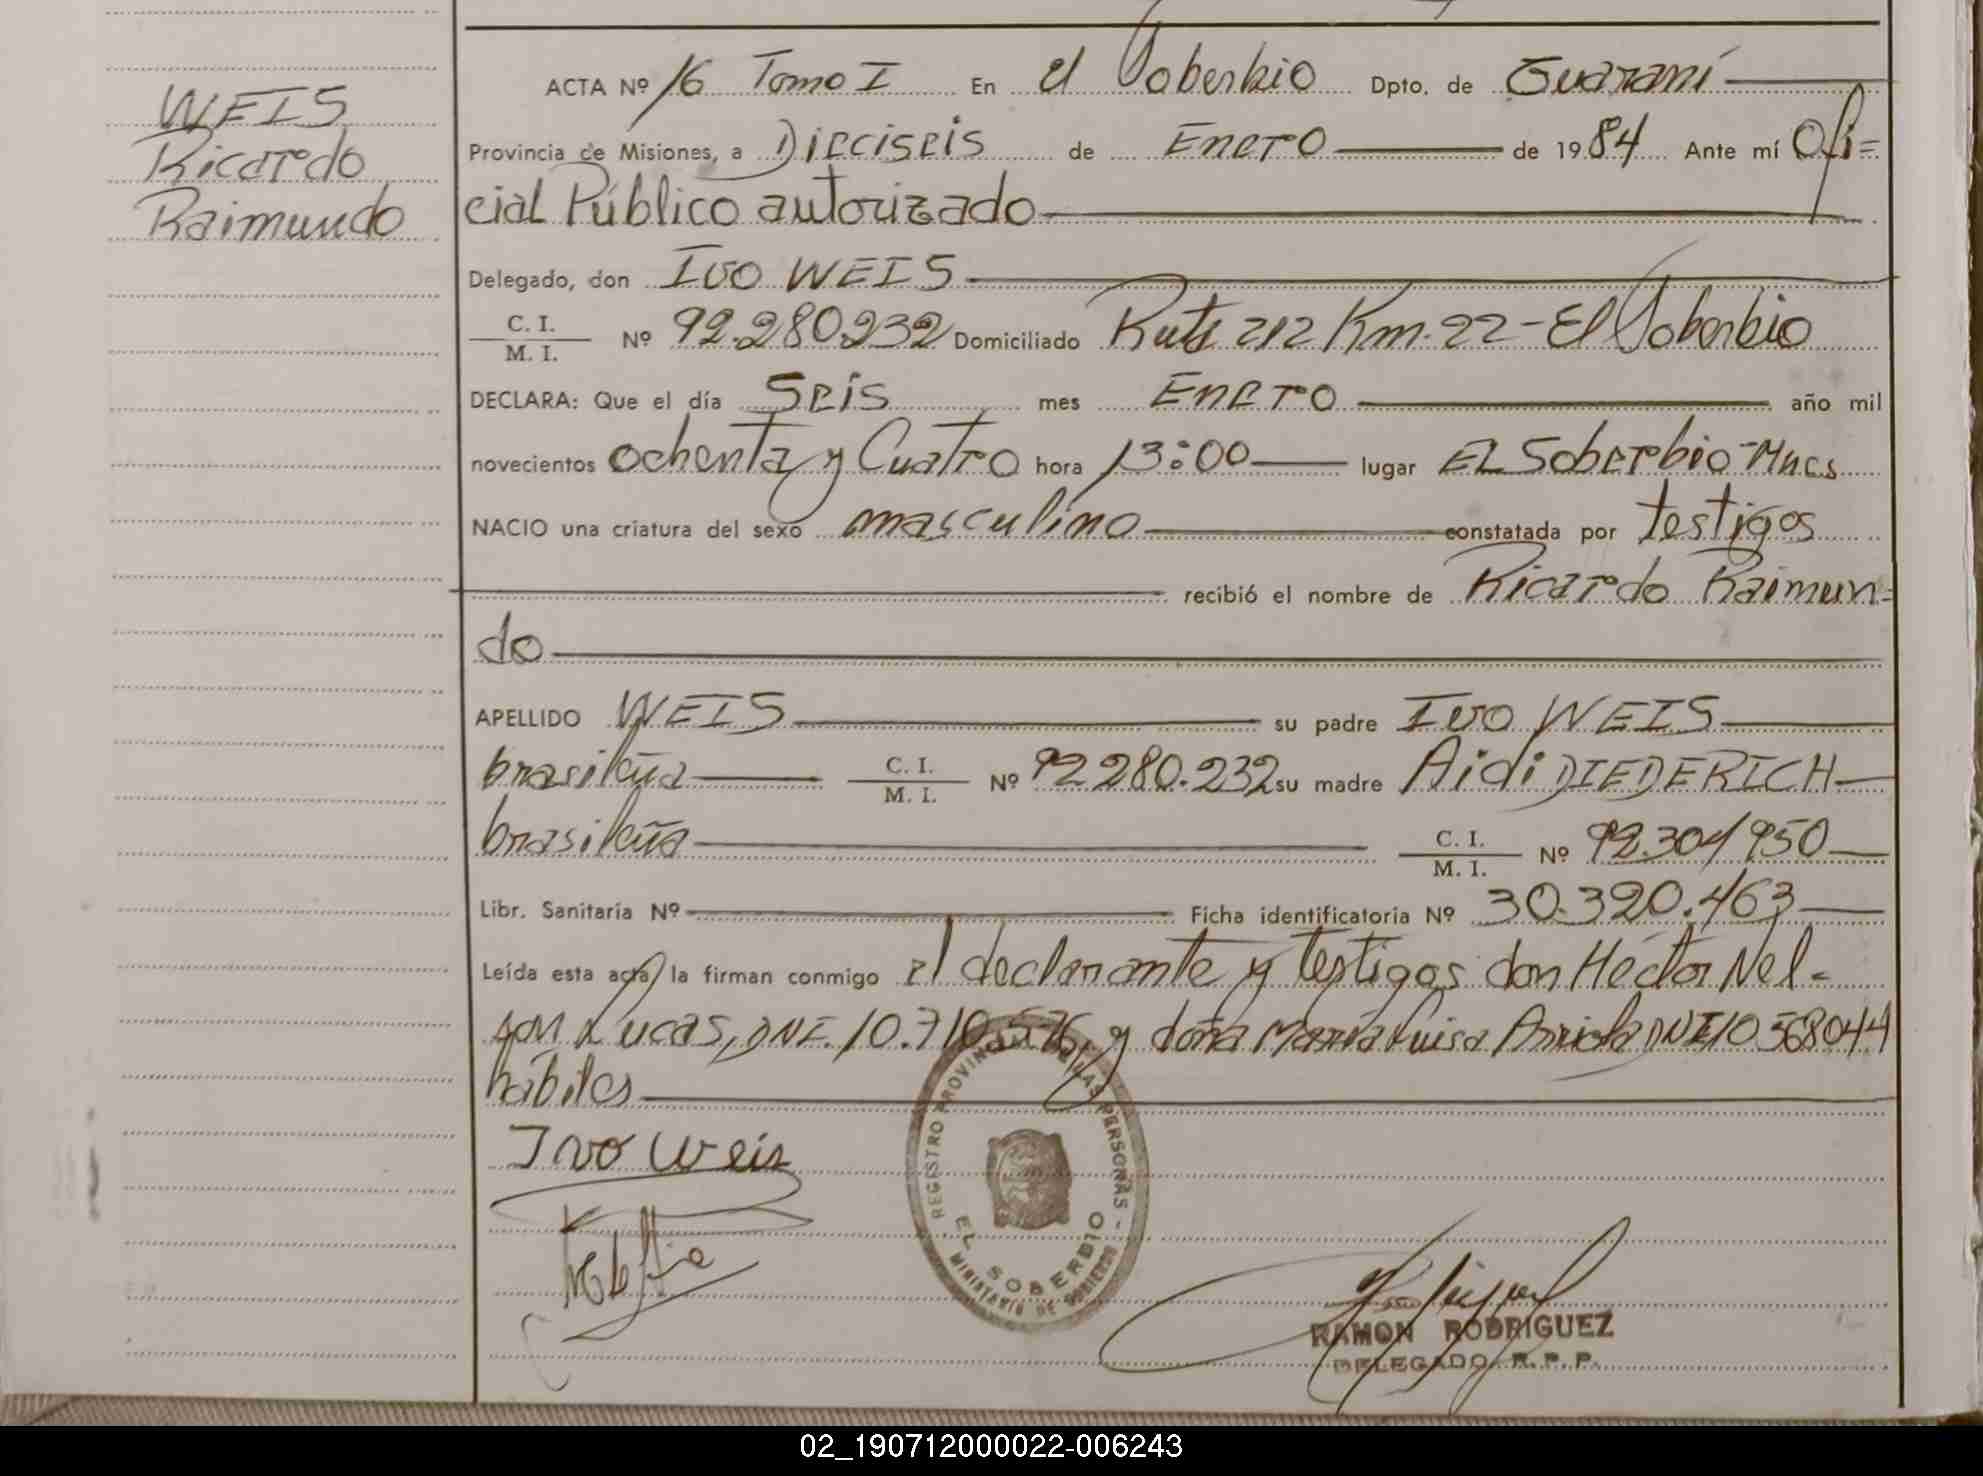 WEIS
Ricardo
Raimundo
ACTA Nº 16 Tomo I En el Soberbio Dpto. de Guaraní
Provincia de Misiones, a Dieciseis de Enero de 1984 Ante mí Ofi=
cial Público autorizado
Delegado, don Ivo WEIS
C. I.
M. I. Nº 92.280.232 Domiciliado Ruta 212 Km. 22 - El Soberbio
DECLARA: Que el día Seis mes Enero año mil
novecientos ochenta y Cuatro hora 13:00 lugar EL Soberbio - Mnes
NACIO una criatura del sexo masculino constatada por testigos
recibió el nombre de Ricardo Raimun=
do
APELLIDO WEIS su padre Ivo WEIS
brasileña C. I.
M. I. Nº 92.280.232 su madre Aidi DIEDERICH
brasileña C. I.
M. I. Nº 92.304950
Libr. Sanitaria Nº Ficha identificatoria Nº 30.390.463
Leída esta acta, la firman conmigo el declarante y testigos don Héctor Nel-
son Lucas, DNI. 10.710.576, y doña María Luisa Arriola DNI 10568044
hábiles
Ivo Weis
REGISTRO PROVINCIAL DE LAS PERSONAS -
EL SOBERBIO
MINISTERIO DE GOBIERNO
RAMON RODRIGUEZ
DELEGADO R. P. P.
02_190712000022-006243